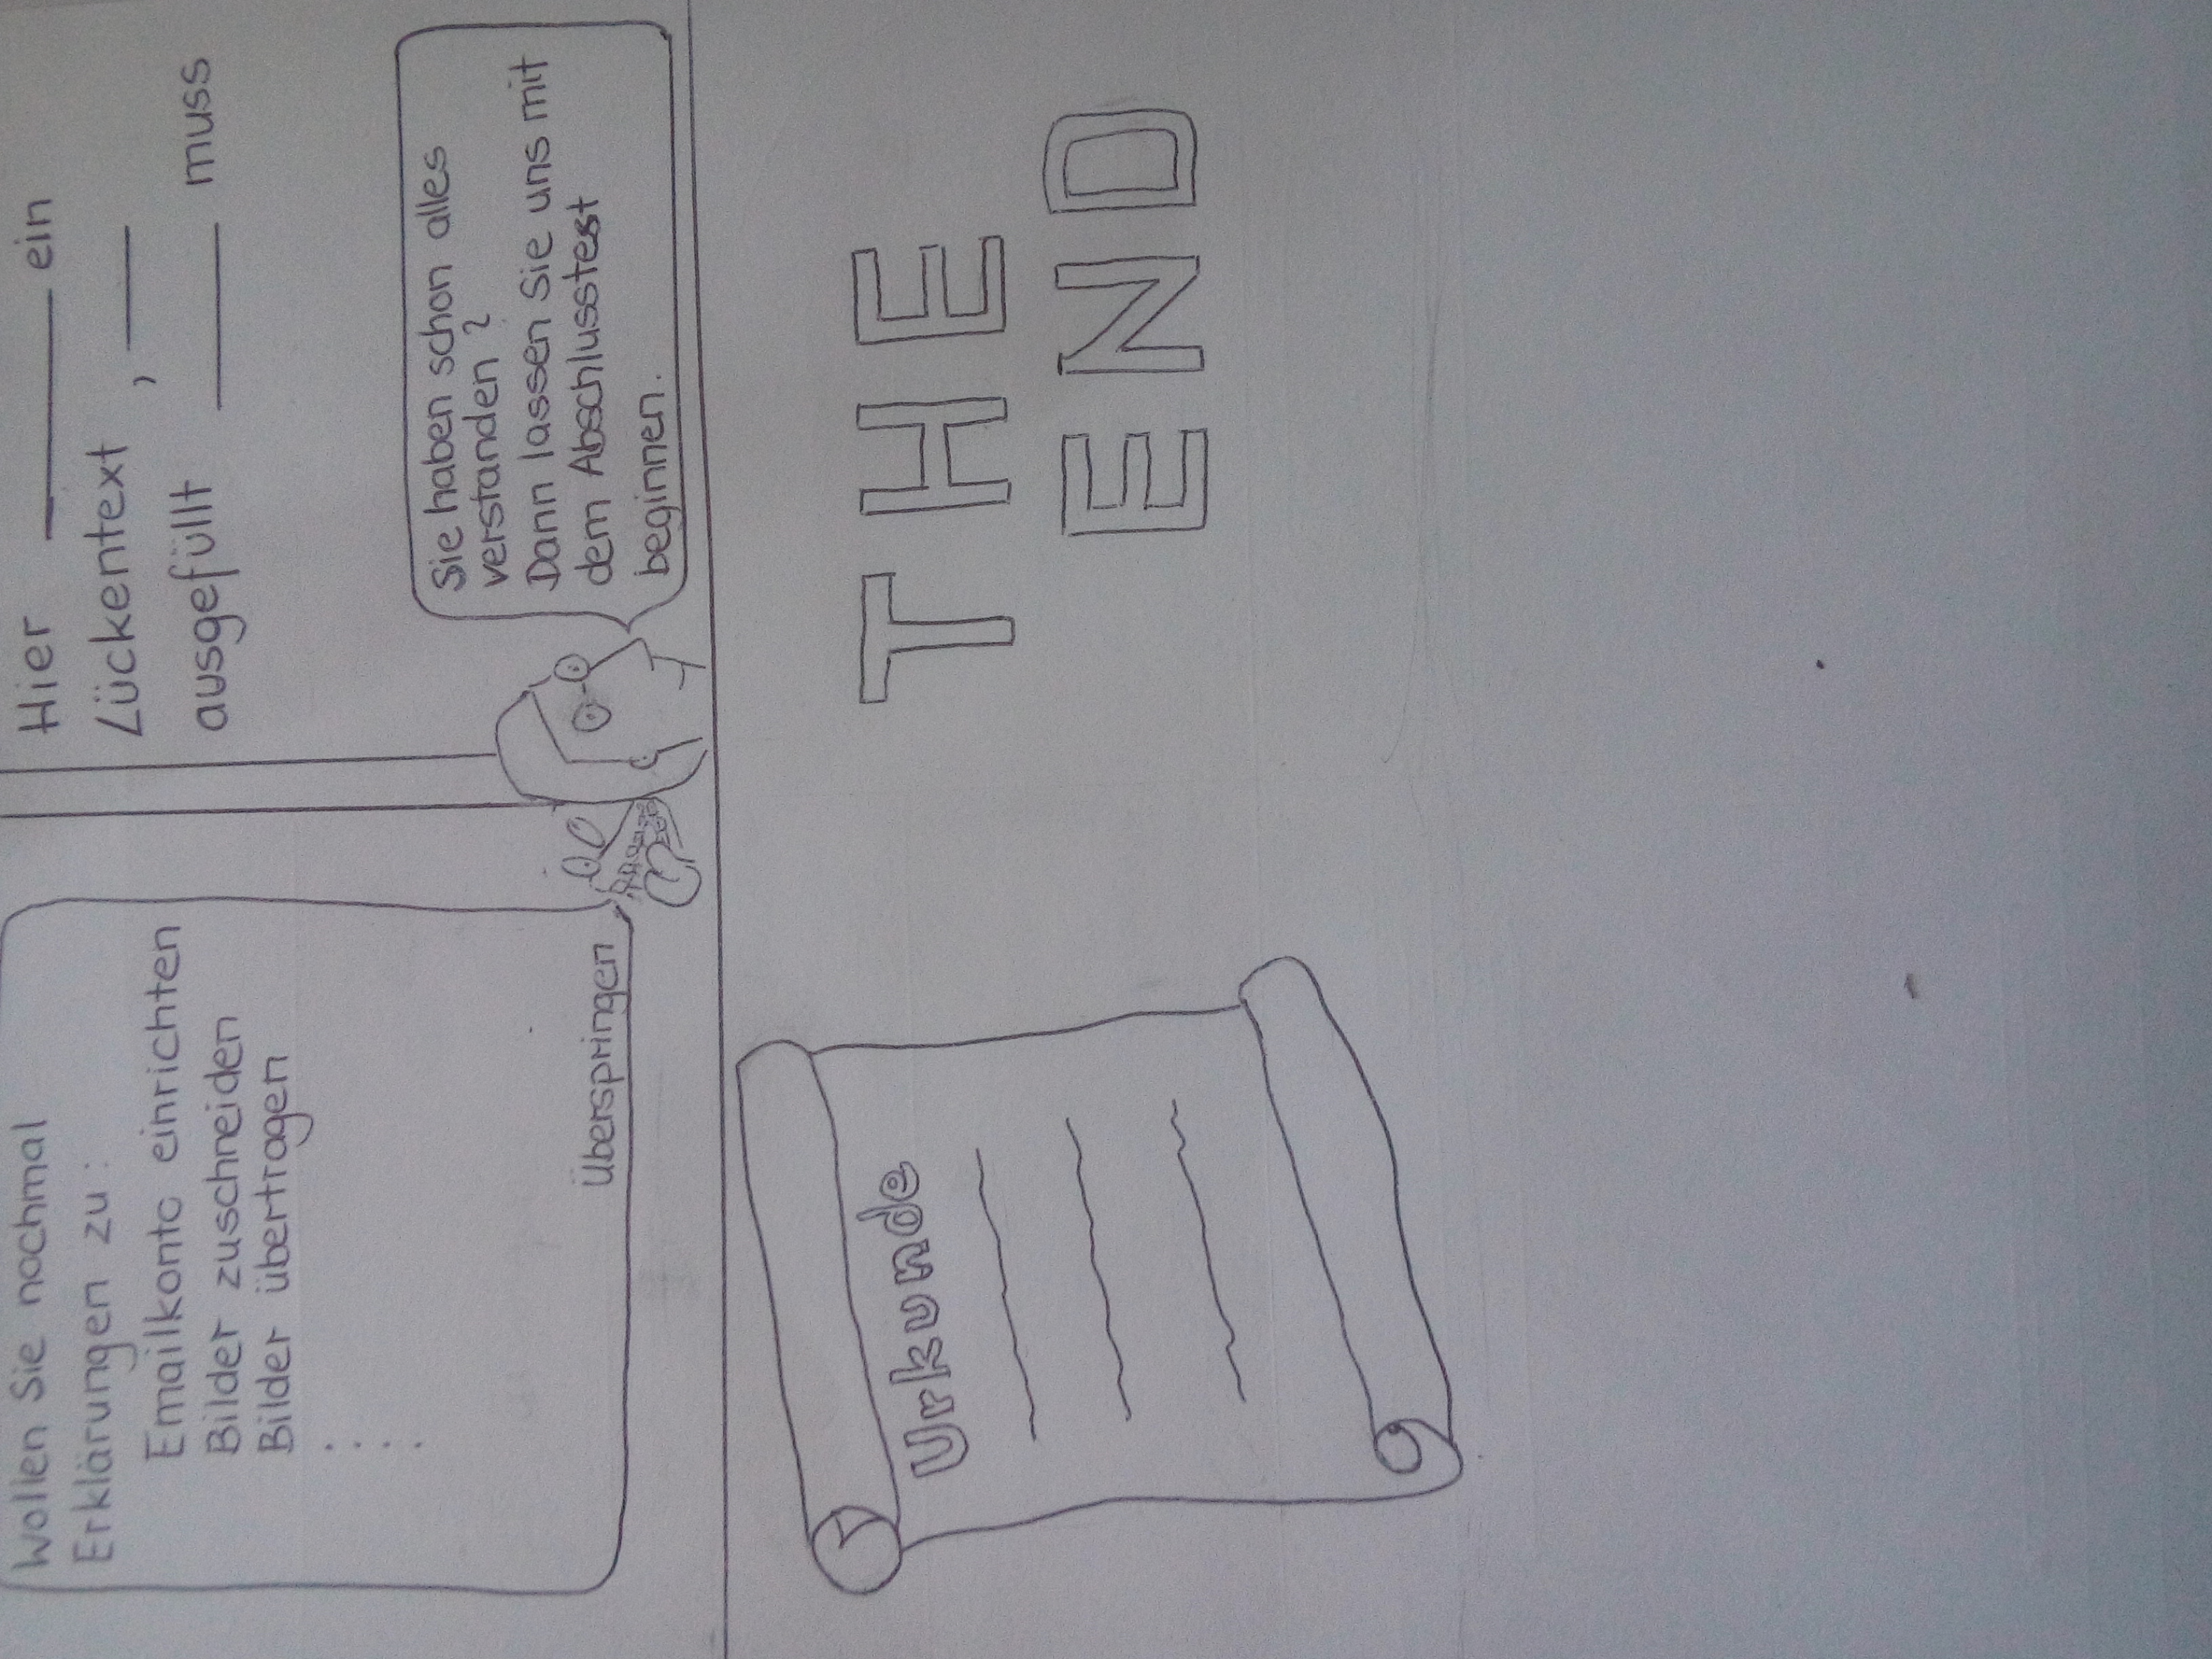 Wollen Sie nochmal
Erklärungen zu:
Emailkonto einrichten
Bilder zuschneiden
Bilder übertragen
.
.
.
.
Überspringen
Hier ________ ein
Lückentext , ____
ausgefüllt ______ muss
Sie haben schon alles
verstanden ?
Dann lassen Sie uns mit
dem Abschlusstest
beginnen.
Urkunde
THE
END